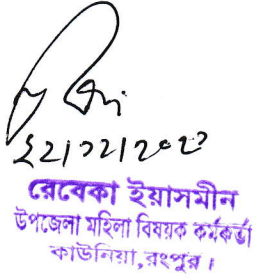 রেবেকা ইয়াসমীন
উপজেলা মহিলা বিষয়ক কর্মকর্তা
কাউনিয়া,রংপুর।